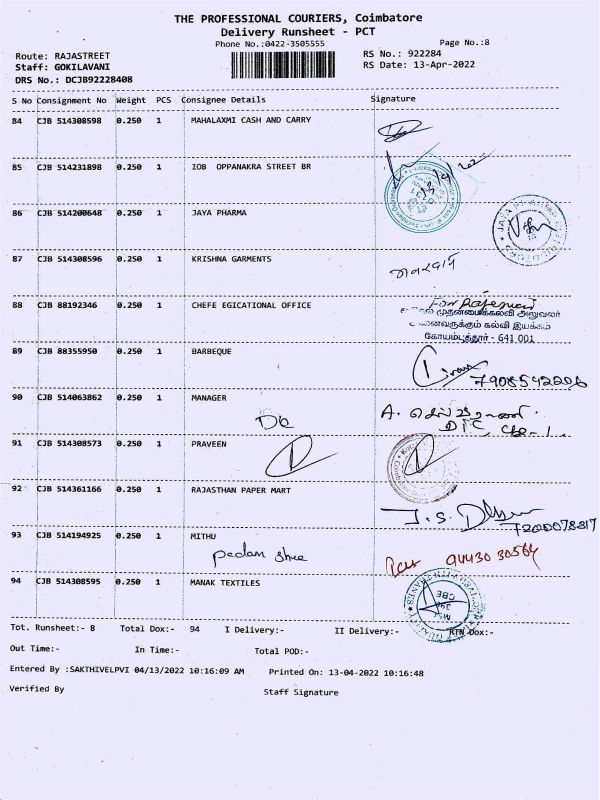 THE PROFESSIONAL COURIERS, Coimbatore
Delivery Runsheet - PCT
Phone No.:0422-3505555
Page No.:8
Route: RAJASTREET
RS No.: 922284
Staff: GOKILAVANI
RS Date: 13-Apr-2022
DRS No.: DCJB92228408
S No Consignment No Weight PCS Consignee Details Signature
84 CJB 514308598 0.250 1 MAHALAXMI CASH AND CARRY
85 CJB 514231898 0.250 1 IOB OPPANAKRA STREET BR
86 CJB 514200648 0.250 1 JAYA PHARMA
87 CJB 514308596 0.250 1 KRISHNA GARMENTS
88 CJB 88192346 0.250 1 CHEFE EGICATIONAL OFFICE
முதன்மைக்கல்வி அலுவலர்
அனைவருக்கும் கல்வி இயக்கம்
கோயம்புத்தூர் - 641 001
89 CJB 88355950 0.250 1 BARBEQUE
7908542206
90 CJB 514063862 0.250 1 MANAGER
Db
A. செல்வராணி
DTC, Cbe-1.
91 CJB 514308573 0.250 1 PRAVEEN
92 CJB 514361166 0.250 1 RAJASTHAN PAPER MART
7200078317
93 CJB 514194925 0.250 1 MITHU
padam shree
94430 30564
94 CJB 514308595 0.250 1 MANAK TEXTILES
Tot. Runsheet:- 8 Total Dox:- 94 I Delivery:- II Delivery:- RTN Dox:-
Out Time:- In Time:- Total POD:-
Entered By :SAKTHIVELPVI 04/13/2022 10:16:09 AM Printed On: 13-04-2022 10:16:48
Verified By Staff Signature